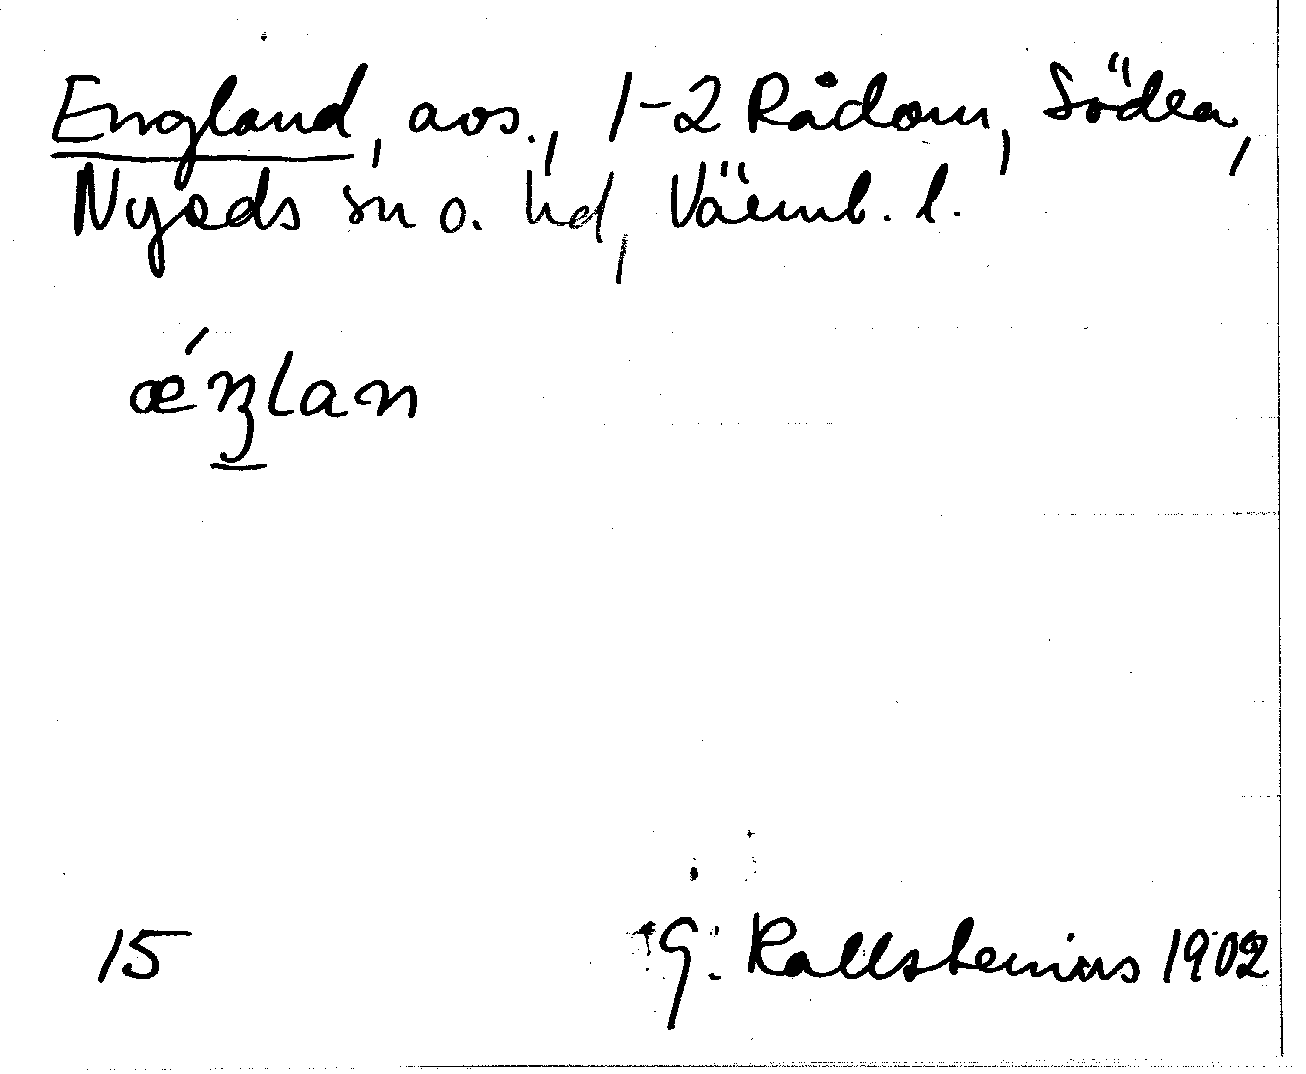 England, avs., 1-2 Rådom, Södra,
Nyeds sn o. hd, Värml. l.
ǽŋlan
15 G. Kallstenius 1902